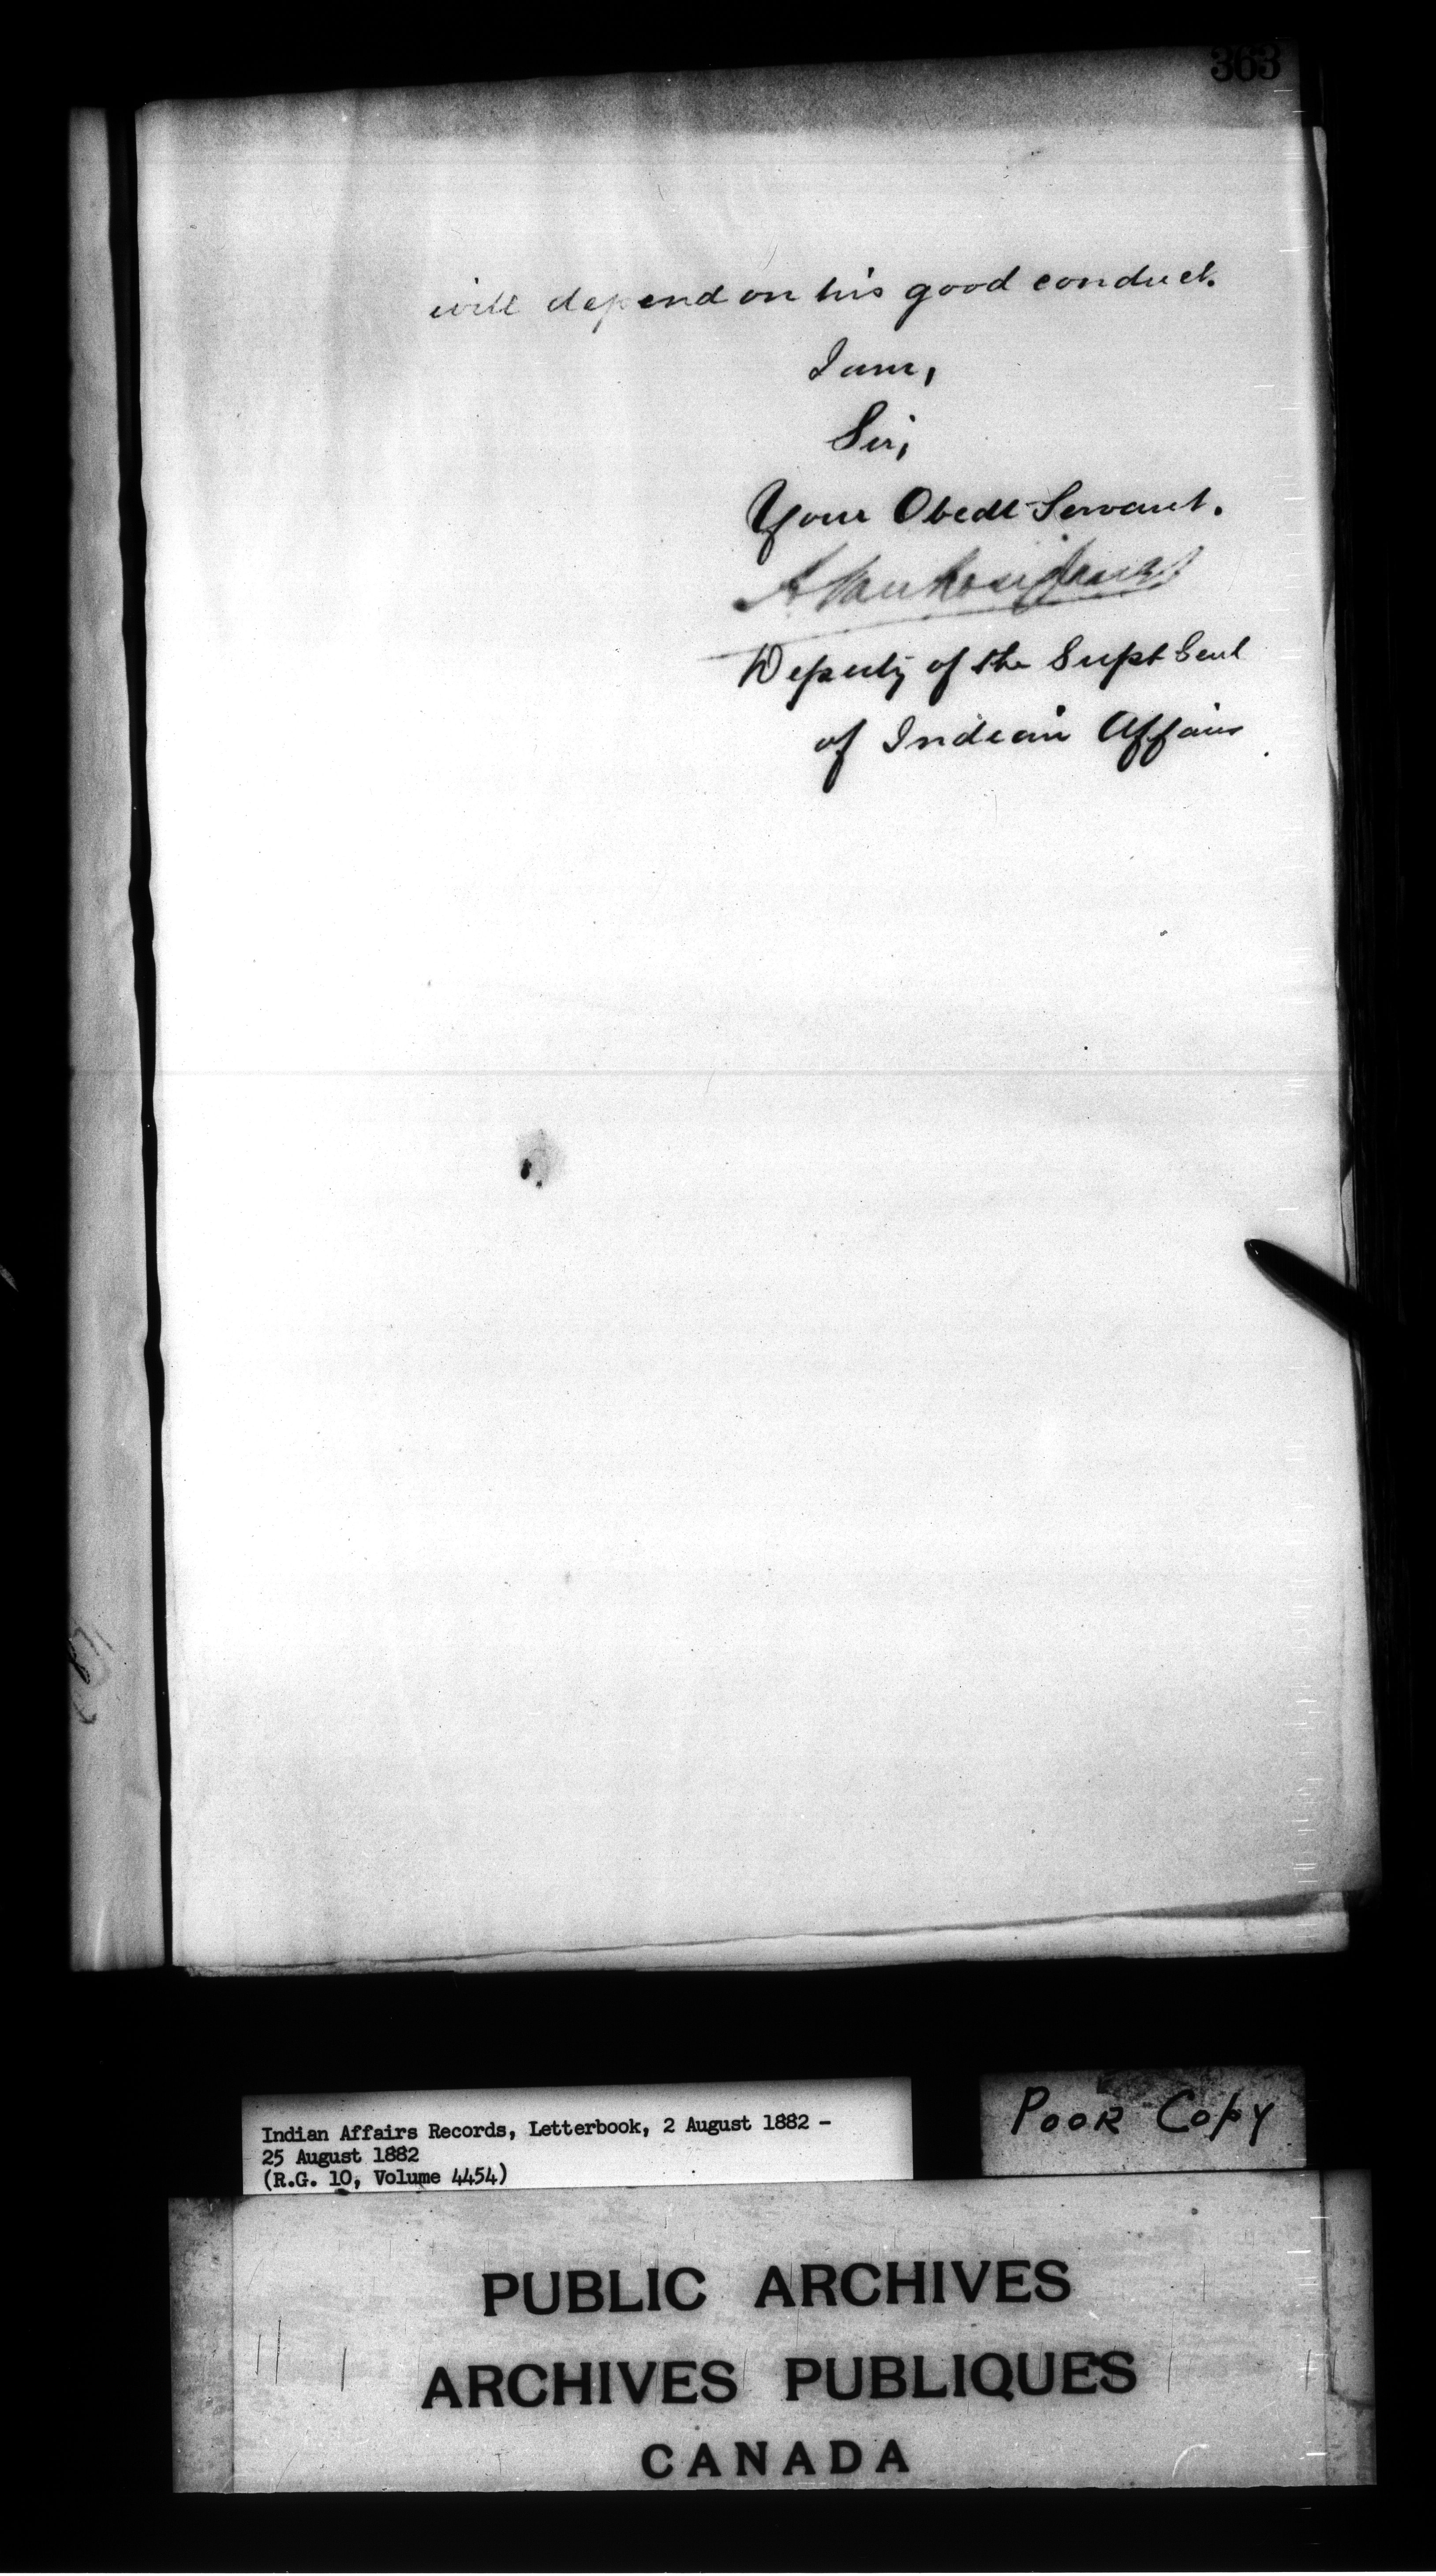 363
will depend on his good conduct.
I am,
Sir,
Your Obedt Servant.
Deputy of the Supt Genl
of Indian Affairs
Indian Affairs Records, Letterbook, 2 August 1882 -
25 August 1882
(R.G. 10, Volume 4454)
POOR COPY
PUBLIC ARCHIVES
ARCHIVES PUBLIQUES
CANADA